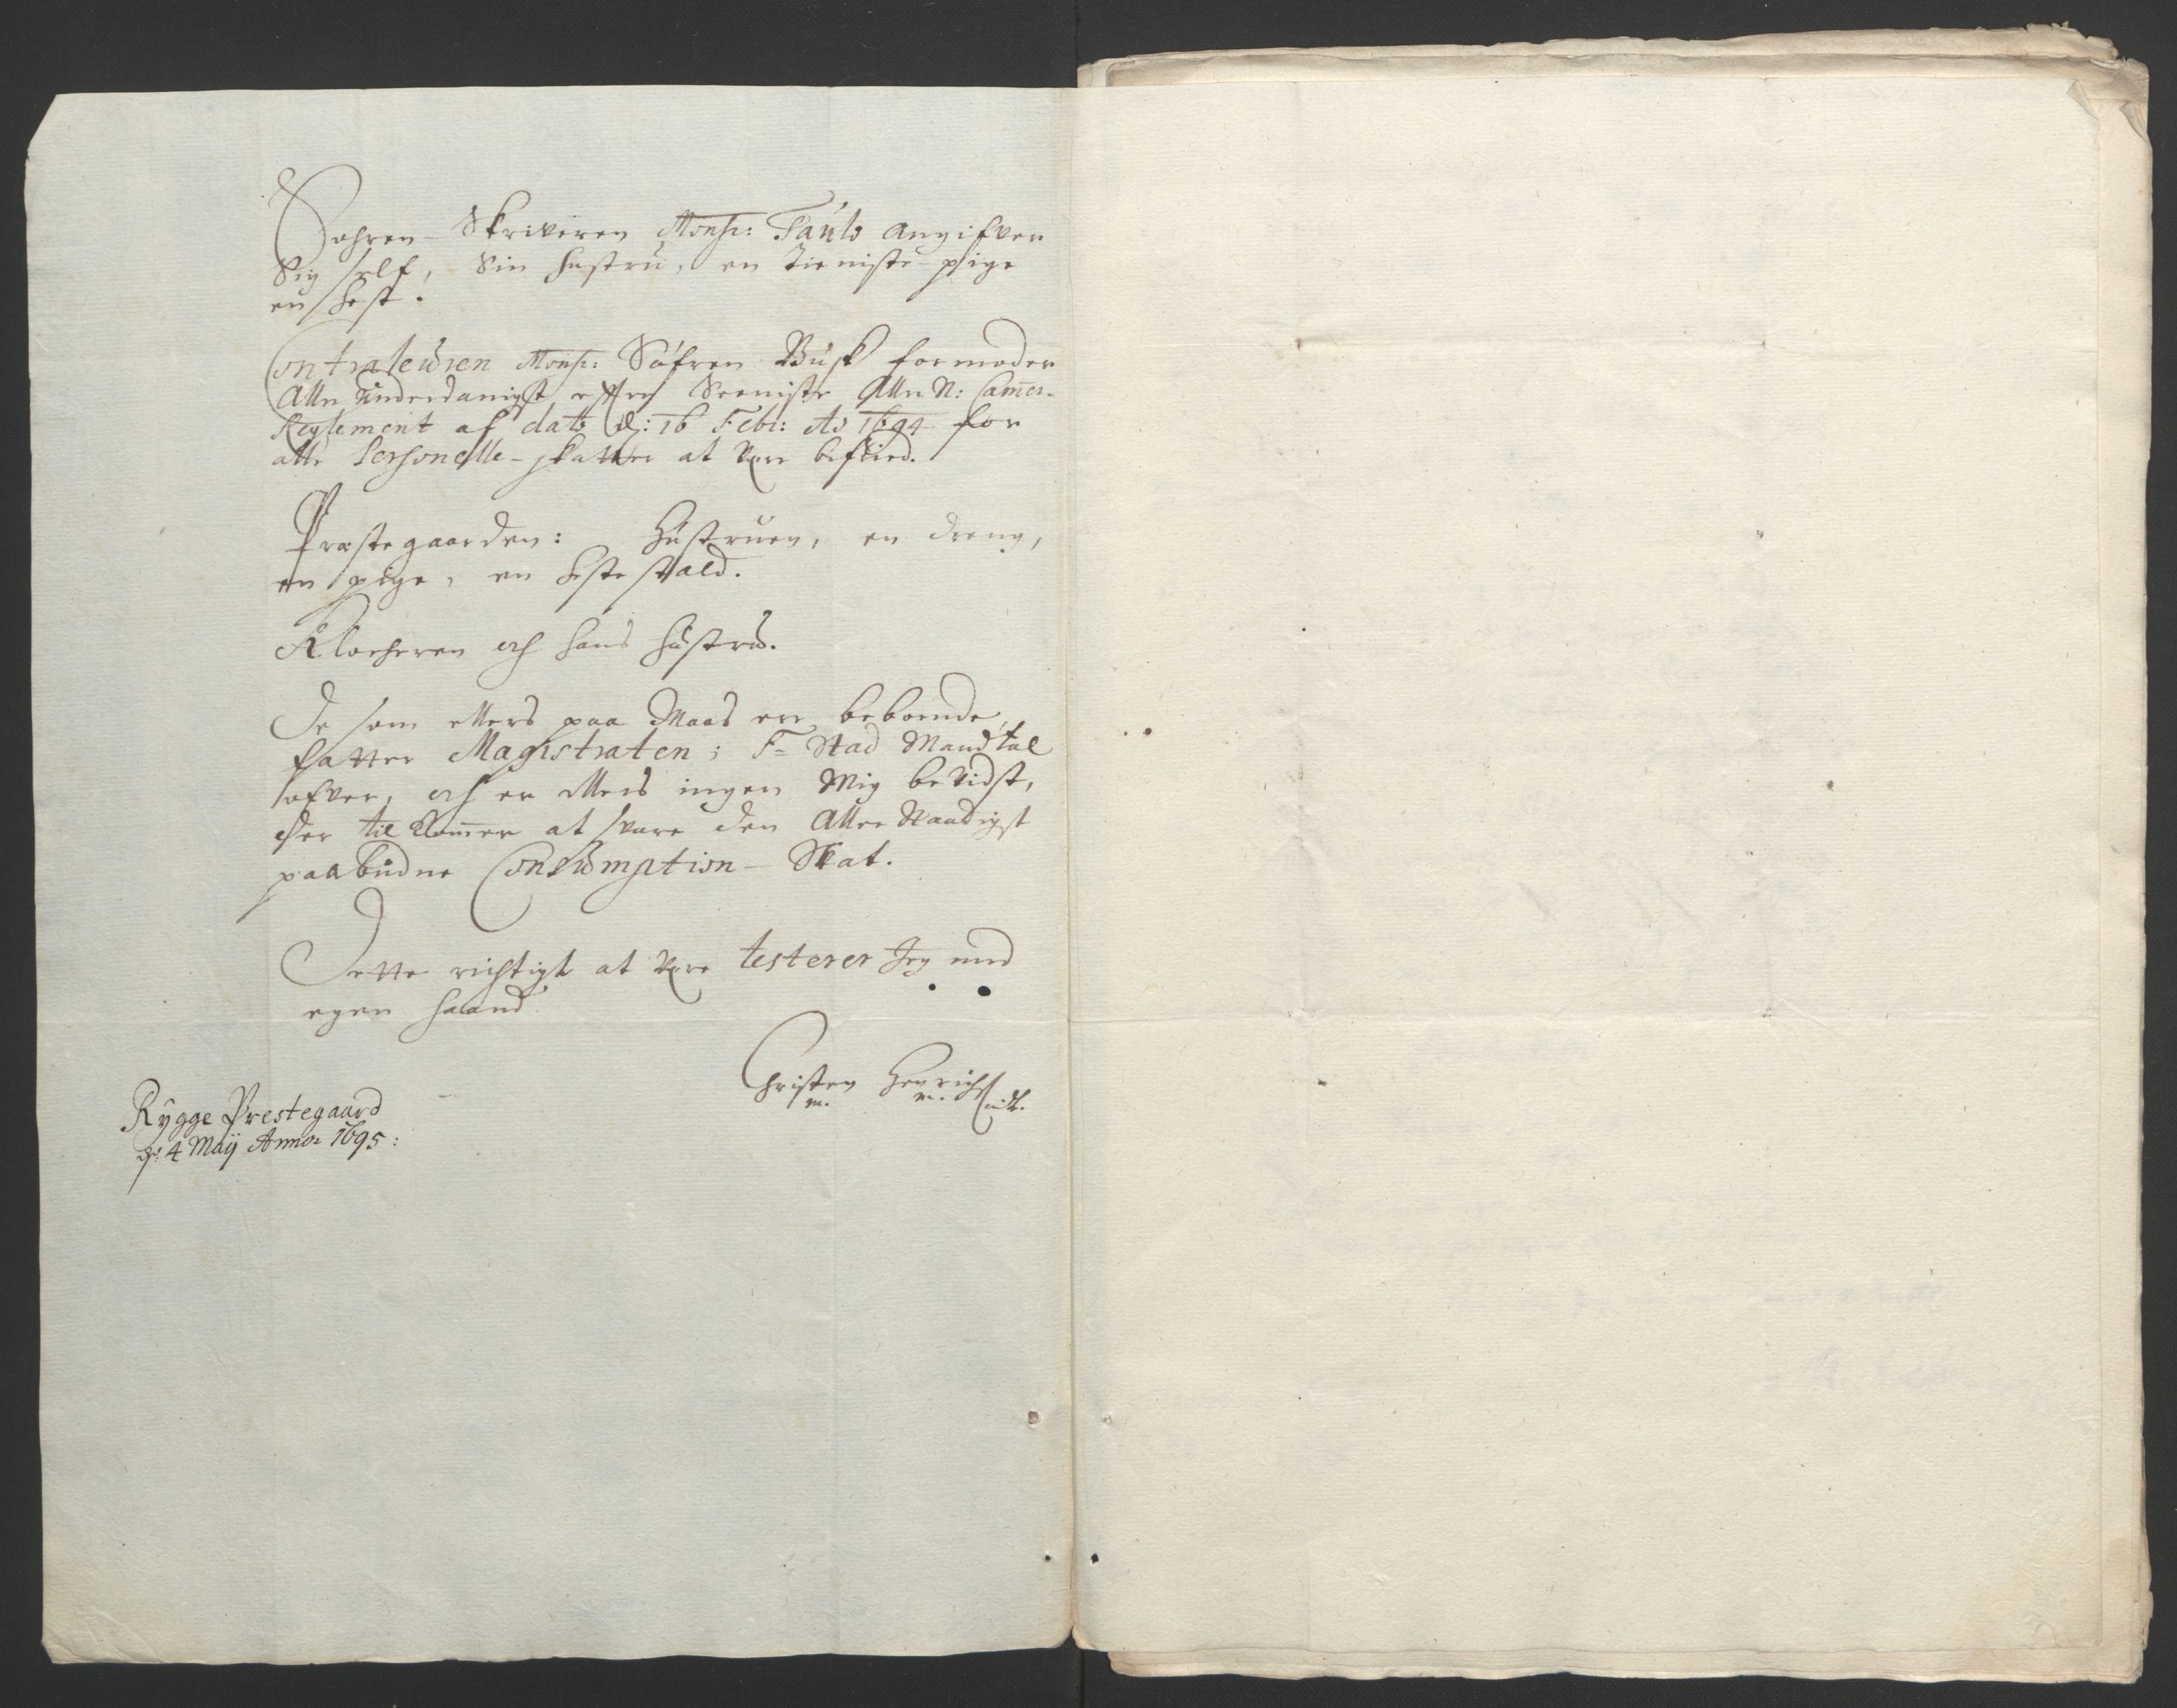 Sohren-Skriveren Monsr: Påuls angifver
Sig self, Sin hustrú, en tieniste-pige
en hest.
Contraleuren Monsr: Søfren Búsk formoder
Aller underdanigst effter Seeniste Aller N: Camer-
Reglement af dato d: 16 Febr: Ao 1694 for
alle Personelle-skatter at være befried.
Præstegaarden: Hústruen, en dreng,
en pige, en heste stald.
Klocheren och hans hústrú.
De som ellers paa Maas ere beboende,
fatter Magistraten i F= Stad Mandtal
ofver, och er ellers ingen Mig bevidst,
der til kom̅er at svare den Aller Naadigst
paabúdne Consumption-Skat.
Dette richtigt at være testerer Jeg med
egen haand
Christen Henrichs
m. m.
Rÿgge Prestegaard
d: 4 Maÿ Anno 1695: